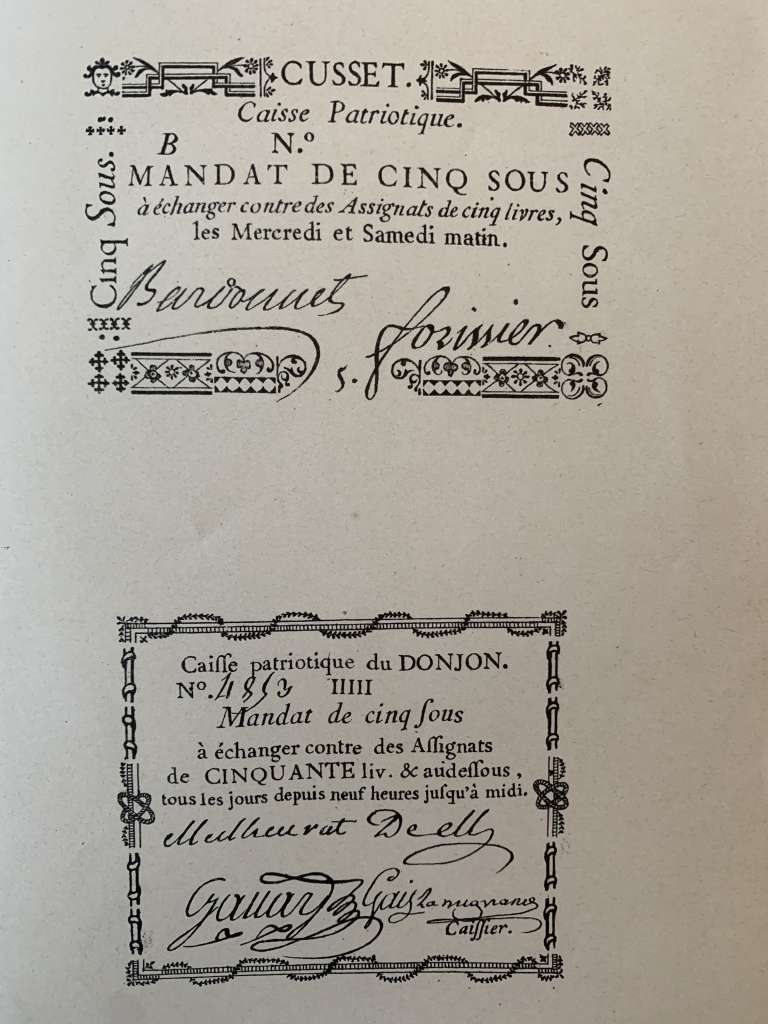 CUSSET.
Caisse Patriotique.
B N.º
MANDAT DE CINQ SOUS
à échanger contre des Assignats de cinq livres,
les Mercredi et Samedi matin.
Cinq Sous.
Cinq Sous
Bardonnet
5.
Caiſſe patriotique du DONJON.
Nº. 4853 IIIII
Mandat de cinq ſous
à échanger contre des Aſſignats
de CINQUANTE liv. & audeſſous,
tous les jours depuis neuf heures juſqu'à midi.
Caiſſier.